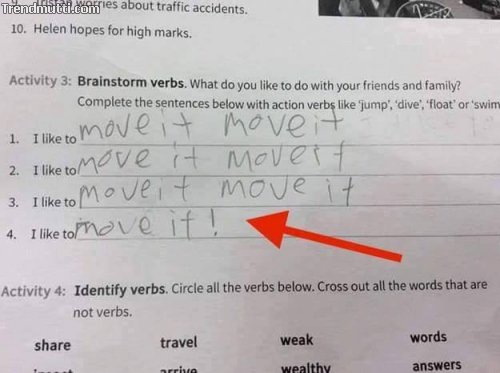 Trendmutti.com
9. Tristan worries about traffic accidents.
10. Helen hopes for high marks.
Activity 3: Brainstorm verbs. What do you like to do with your friends and family?
Complete the sentences below with action verbs like 'jump', 'dive', 'float' or 'swim
1. I like to move it move it
2. I like to move it move it
3. I like to move it move it
4. I like to move it!
Activity 4: Identify verbs. Circle all the verbs below. Cross out all the words that are
not verbs.
share travel weak words
arrive wealthy answers